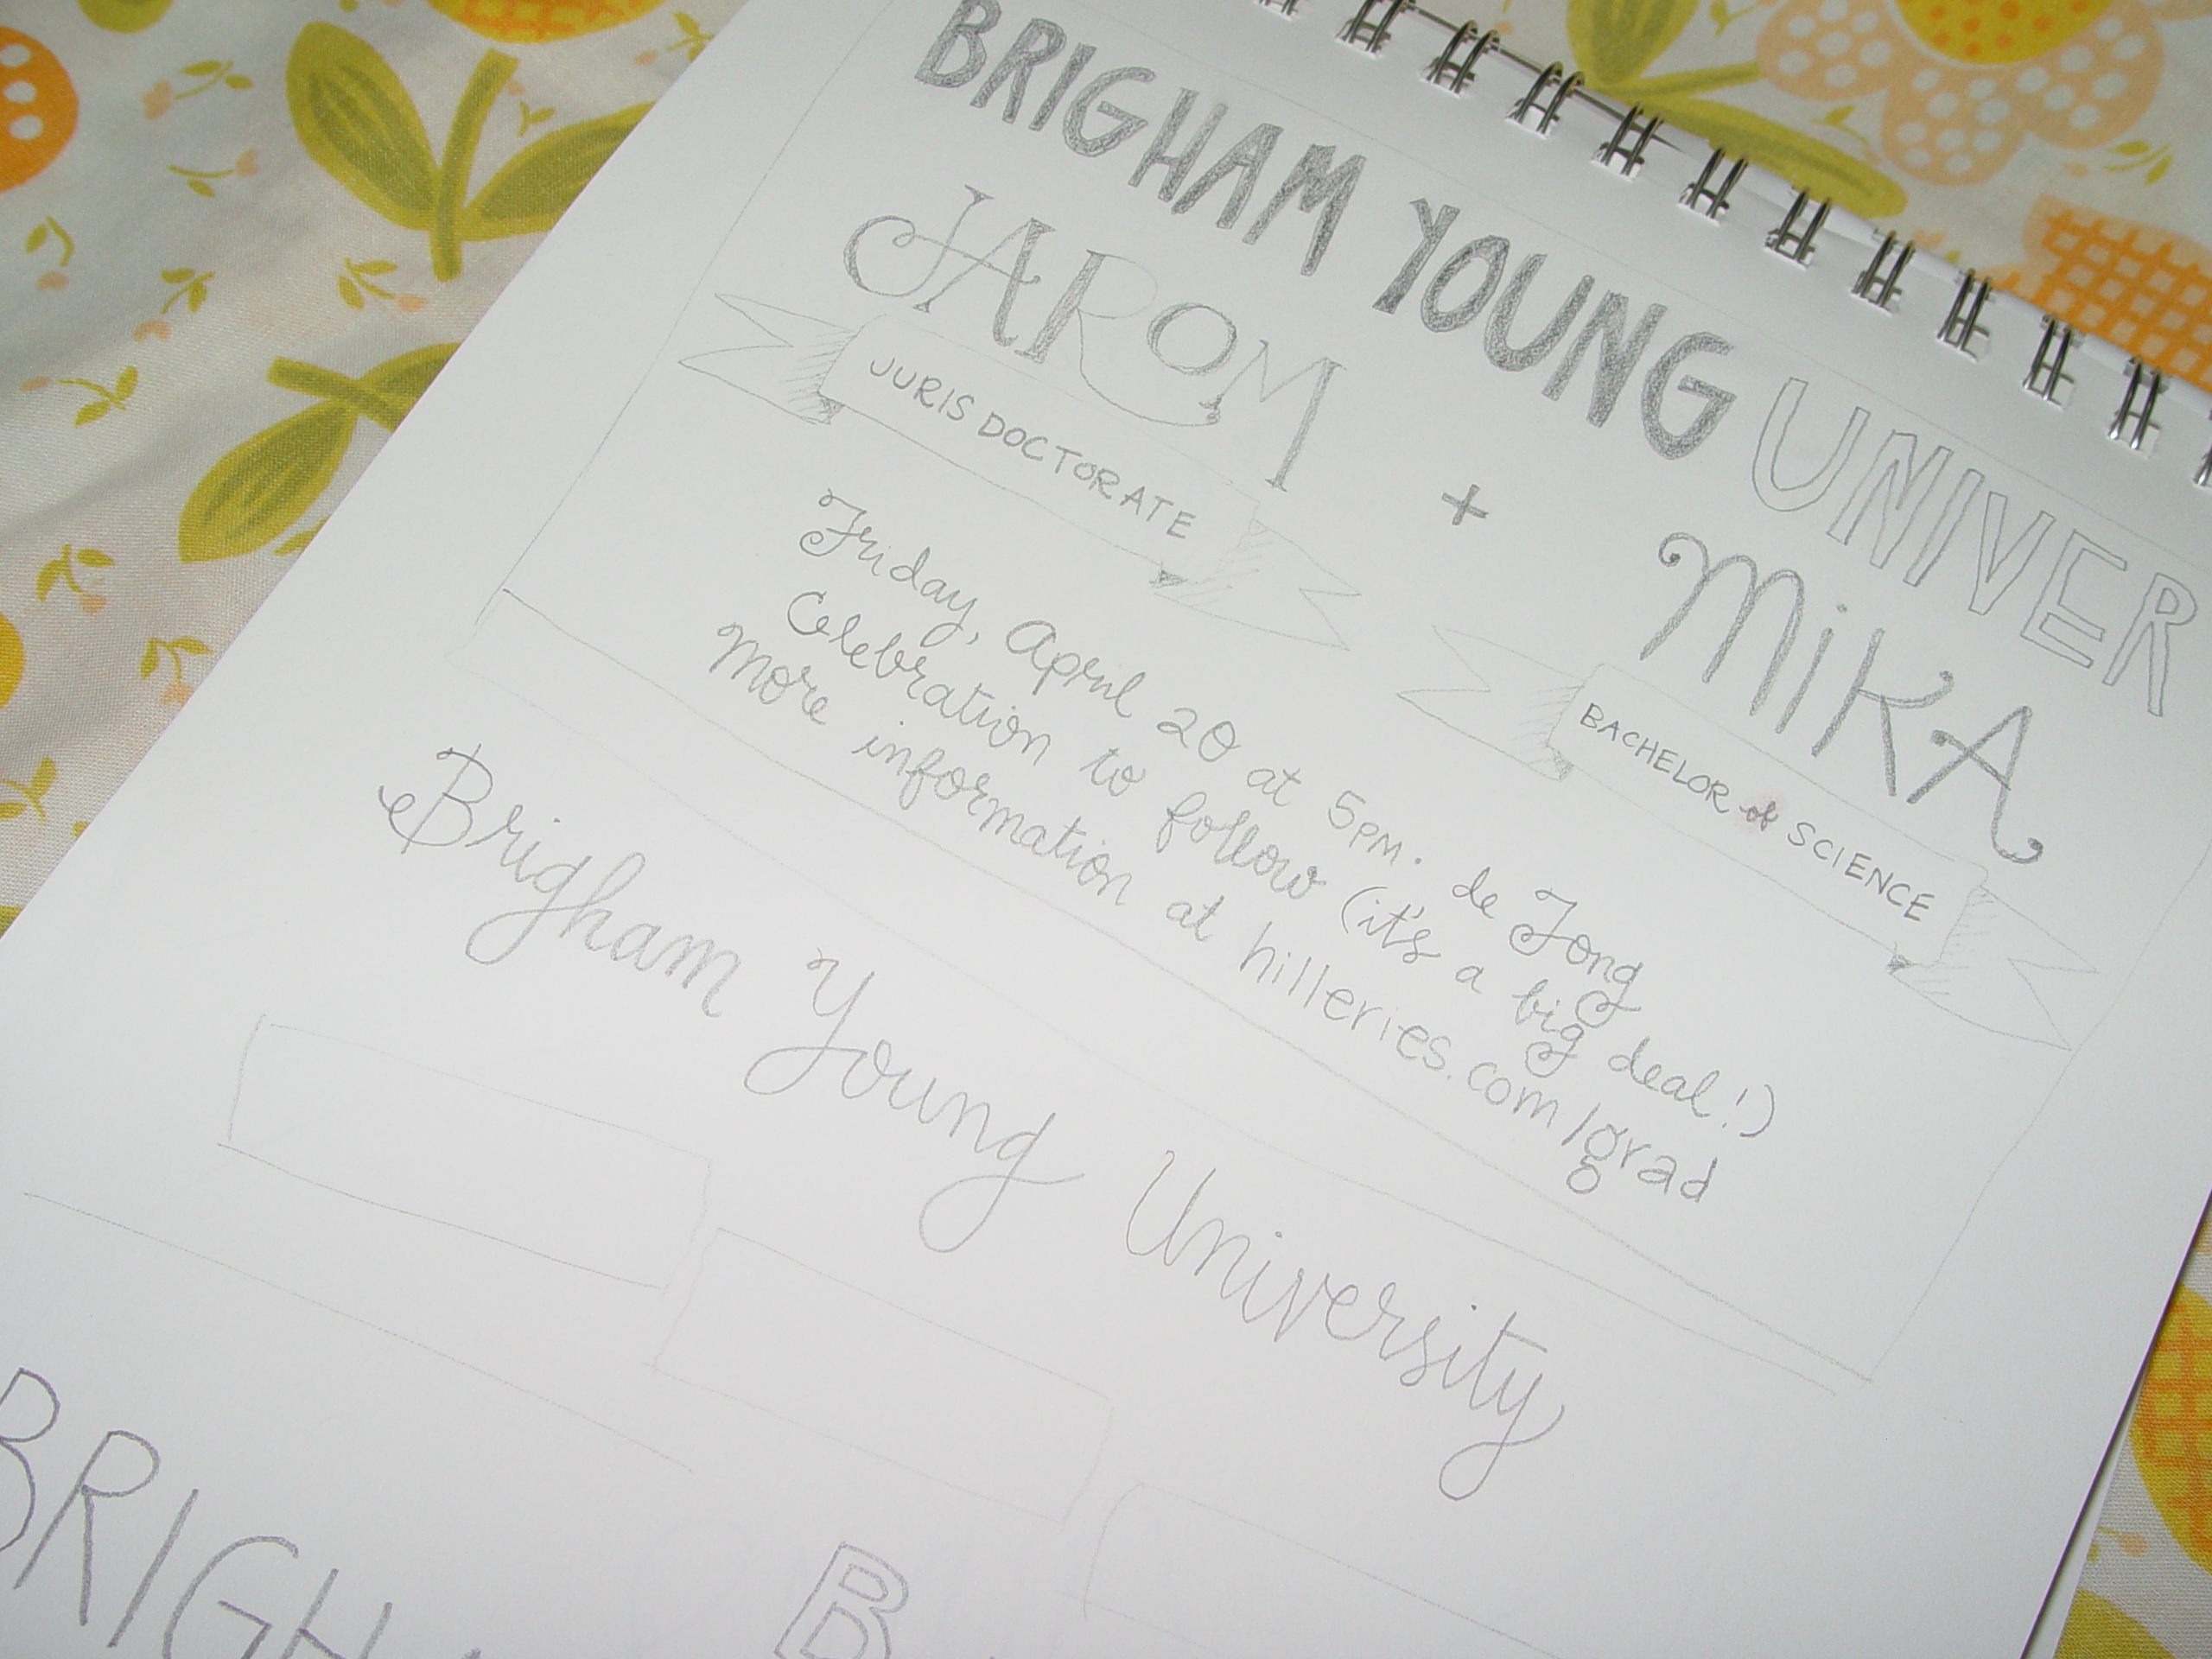 BRIGHAM YOUNG UNIVER
JAROM + MiKA
JURIS DOCTORATE
BACHELOR of SCIENCE
Friday, April 20 at 5PM. de Jong
Celebration to follow (it's a big deal!)
More information at hilleries.com/grad
Brigham Young University
BRIGH
B